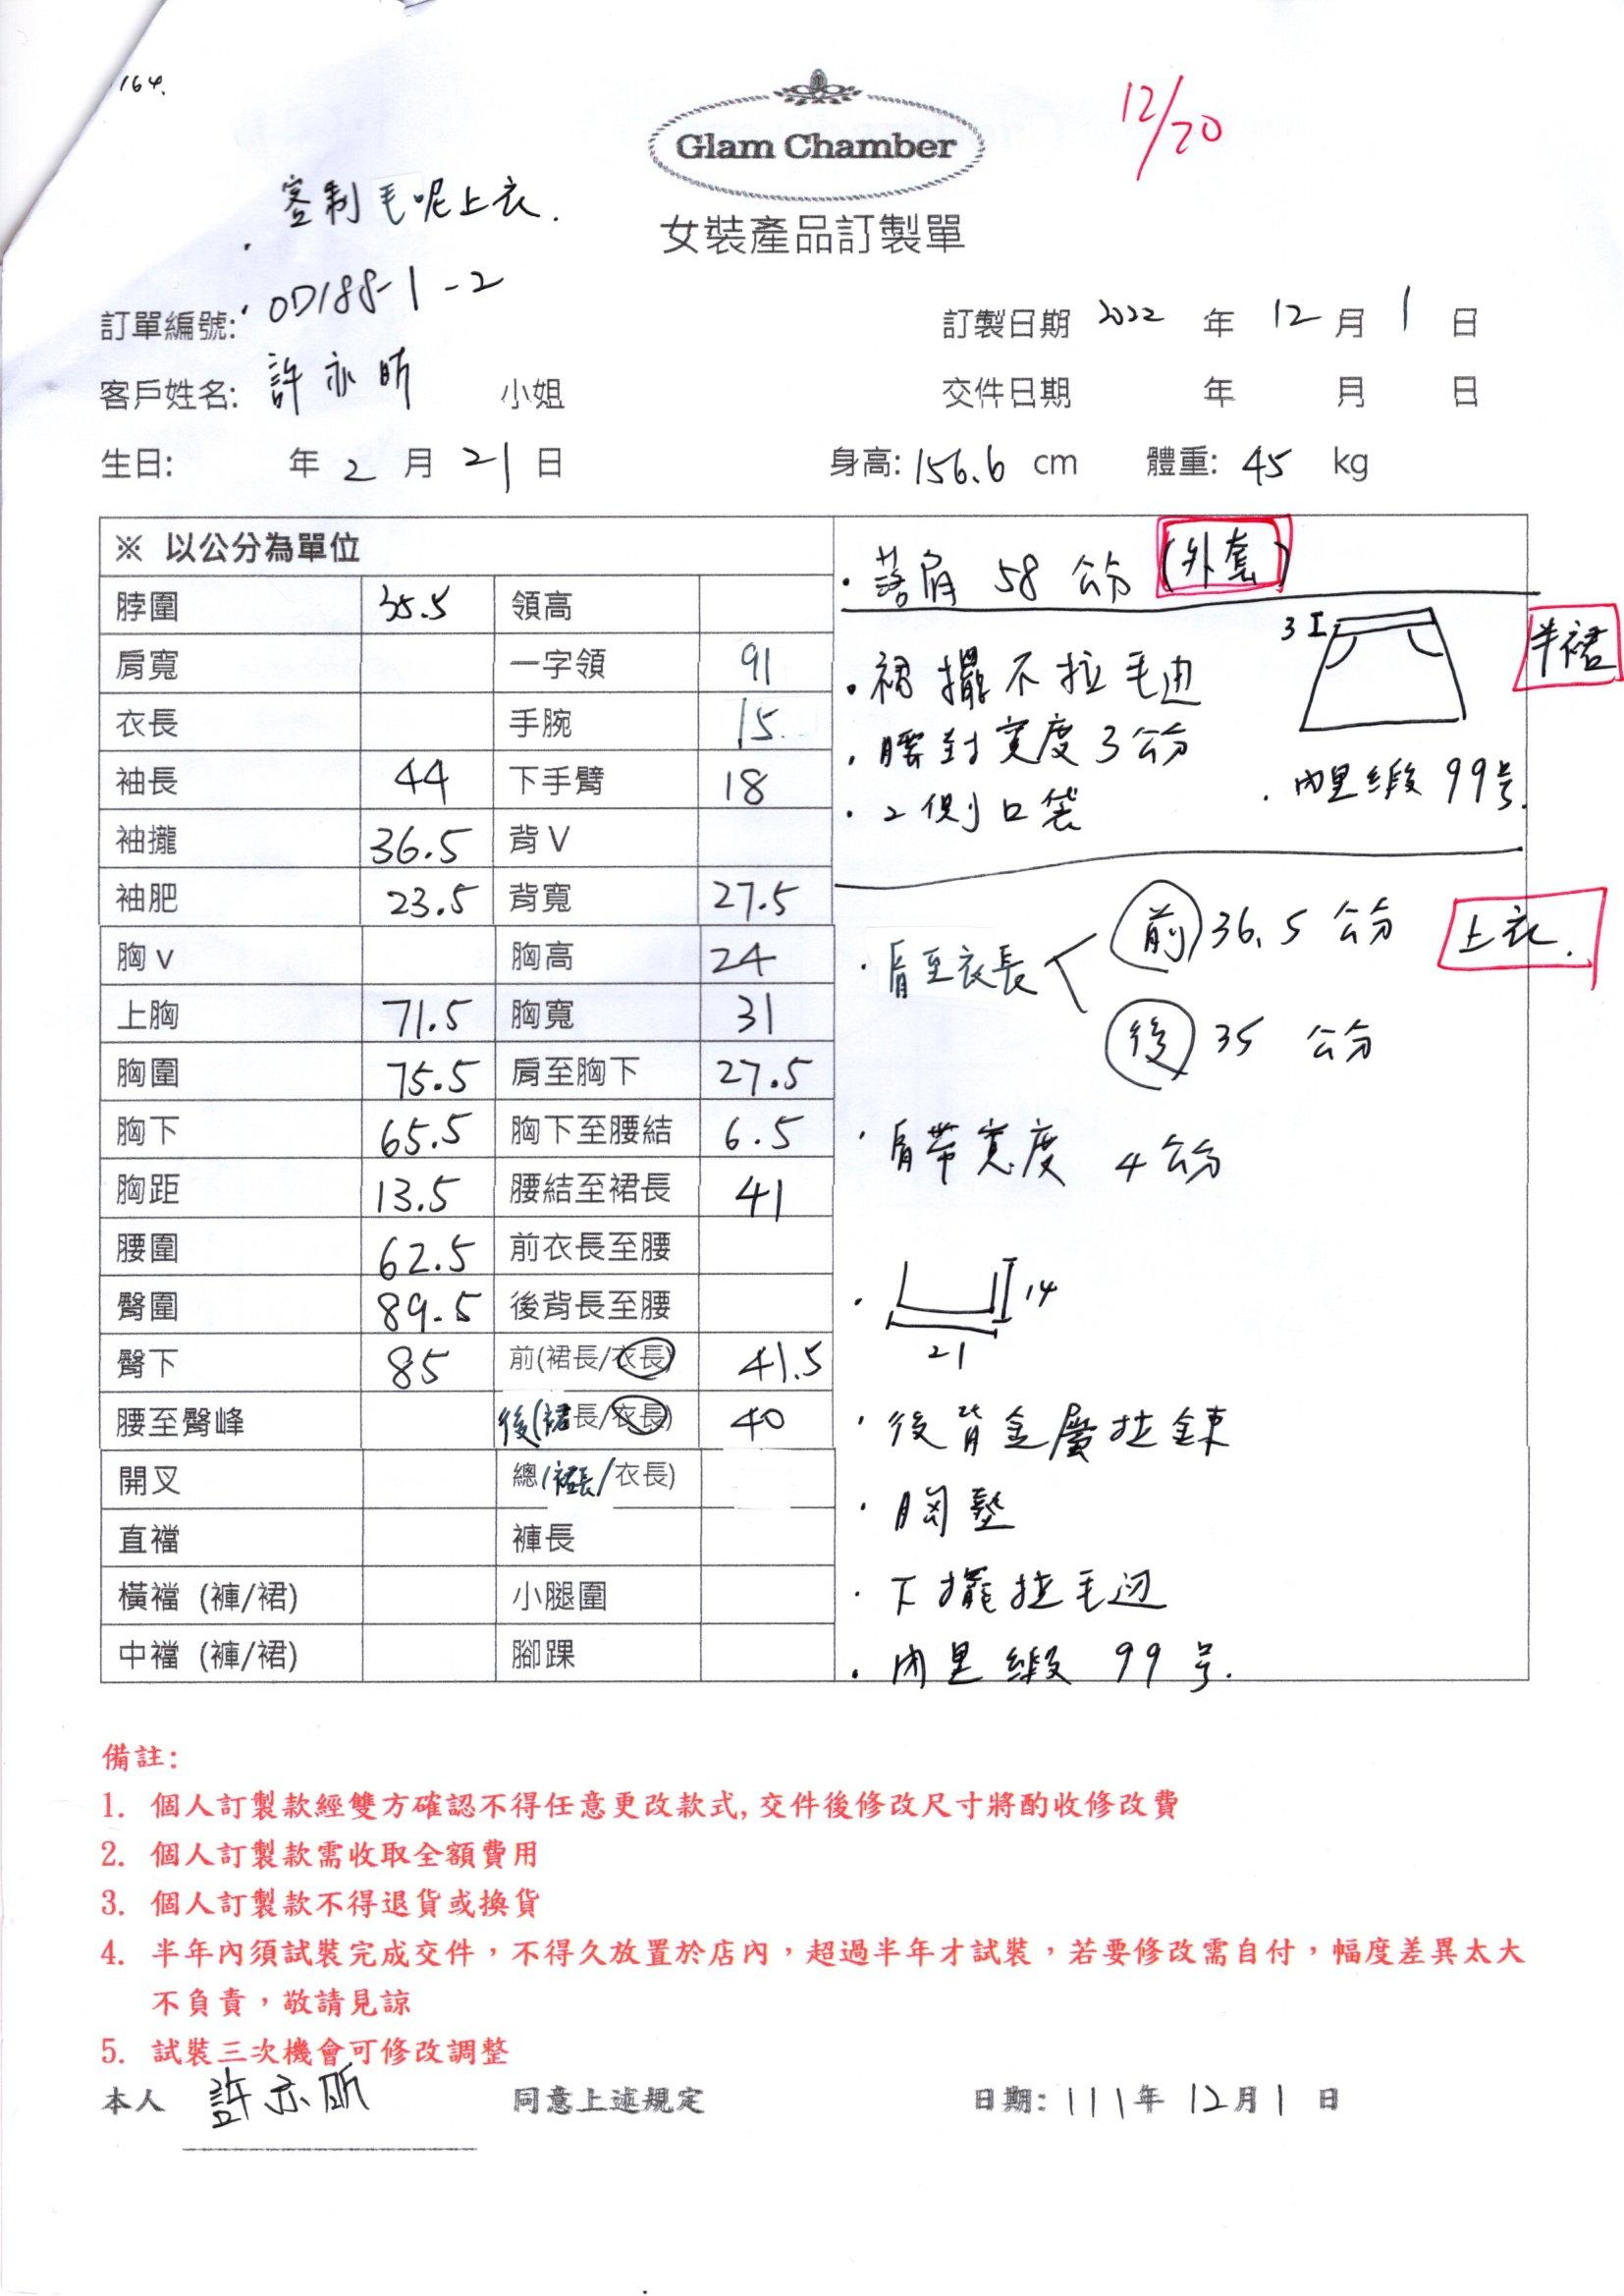 164.
Glam Chamber
12/20
客制毛呢上衣.
女裝產品訂製單
訂單編號: OD188-1-2
訂製日期 2022 年 12 月 1 日
客戶姓名: 許亦昕 小姐
交件日期 年 月 日
生日: 年 2 月 21 日
身高: 156.6 cm 體重: 45 kg
※ 以公分為單位
脖圍 35.5 領高
肩寬 一字領 91
衣長 手腕 15.
袖長 44 下手臂 18
袖攏 36.5 背V
袖肥 23.5 背寬 27.5
胸v 胸高 24
上胸 71.5 胸寬 31
胸圍 75.5 肩至胸下 27.5
胸下 65.5 胸下至腰結 6.5
胸距 13.5 腰結至裙長 41
腰圍 62.5 前衣長至腰
臀圍 89.5 後背長至腰
臀下 85 前(裙長/衣長) 41.5
腰至臀峰 後(裙長/衣長) 40
開叉 總(裙長/衣長)
直襠 褲長
橫襠 (褲/裙) 小腿圍
中襠 (褲/裙) 腳踝
· 落肩 58 公分 (外套)
半裙
3
· 裙擺不拉毛边
· 腰封寬度3公分
· 2側口袋
· 內里緞 99号.
上衣.
· 肩至衣長 前 36.5 公分
後 35 公分
· 肩帶寬度 4公分
· 14
21
· 後背金屬拉鍊
· 胸墊
· 下擺拉毛边
· 內里緞 99号.
備註:
1. 個人訂製款經雙方確認不得任意更改款式,交件後修改尺寸將酌收修改費
2. 個人訂製款需收取全額費用
3. 個人訂製款不得退貨或換貨
4. 半年內須試裝完成交件，不得久放置於店內，超過半年才試裝，若要修改需自付，幅度差異太大
不負責，敬請見諒
5. 試裝三次機會可修改調整
本人 許亦昕 同意上述規定 日期: 111年 12月1 日